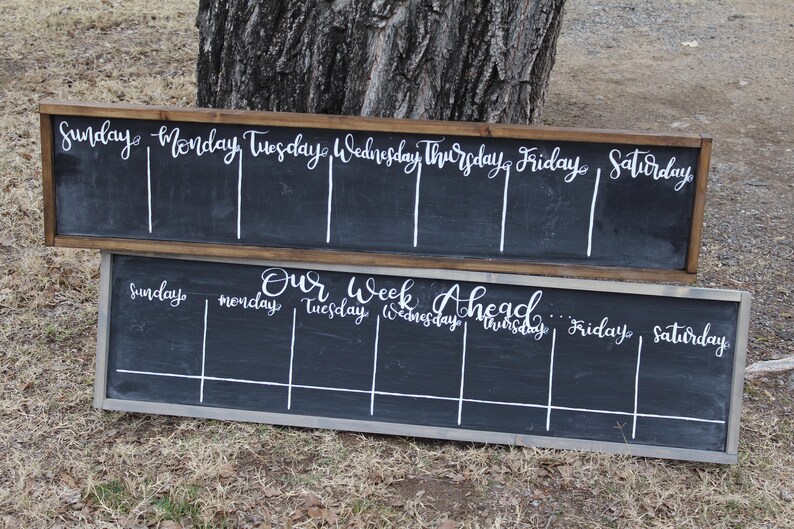 Sunday Monday Tuesday Wednesday Thursday Friday Saturday
Our Week Ahead...
Sunday monday Tuesday Wednesday Thursday Friday Saturday